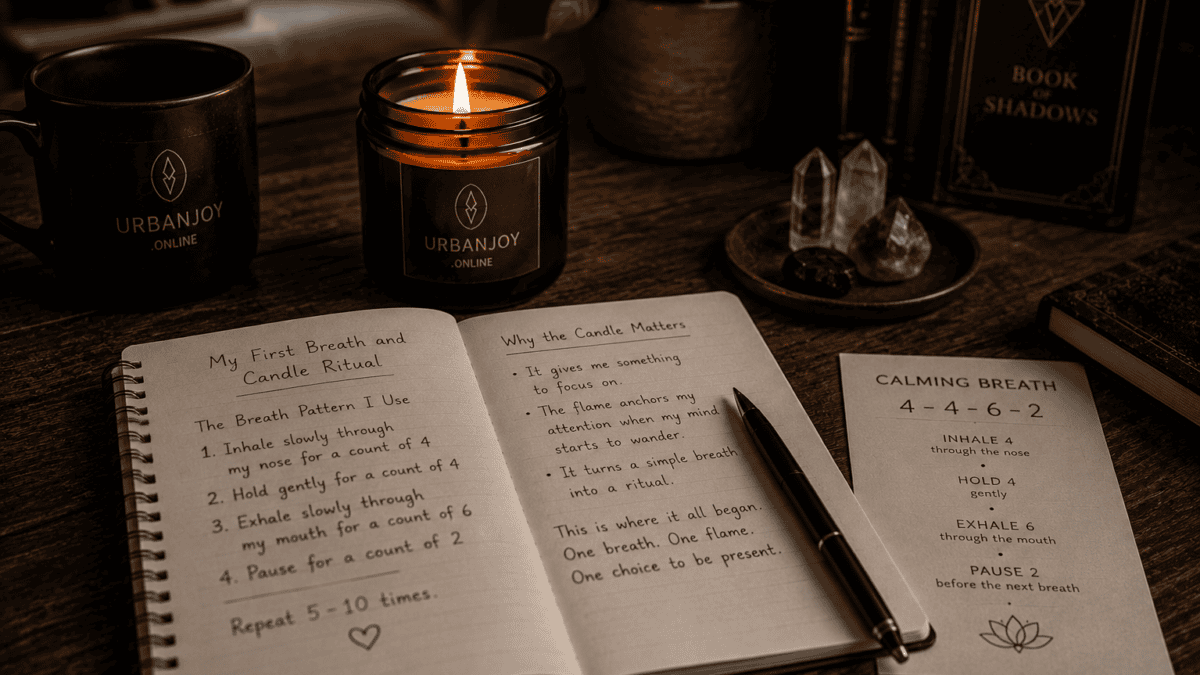 URBANJOY
.ONLINE
URBANJOY
.ONLINE
BOOK
OF
SHADOWS
My First Breath and
Candle Ritual
The Breath Pattern I Use
1. Inhale slowly through
my nose for a count of 4
2. Hold gently for a count of 4
3. Exhale slowly through
my mouth for a count of 6
4. Pause for a count of 2
Repeat 5-10 times.
Why the Candle Matters
• It gives me something
to focus on.
• The flame anchors my
attention when my mind
starts to wander.
• It turns a simple breath
into a ritual.
This is where it all began.
One breath. One flame.
One choice to be present.
CALMING BREATH
4 – 4 – 6 – 2
INHALE 4
through the nose
•
HOLD 4
gently
•
EXHALE 6
through the mouth
•
PAUSE 2
before the next breath